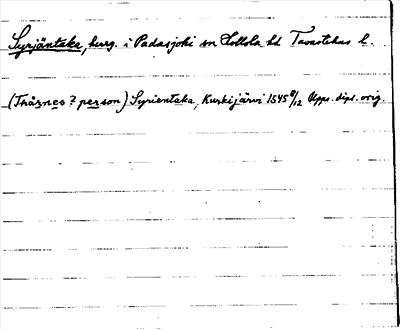 Syrjäntaka, herrg. i Padasjoki sn Hollola hd Tavastehus l.
(Thårnes? person) Syrientaka, Kurkijärvi 1545 8/12 Upps. dipl. orig.